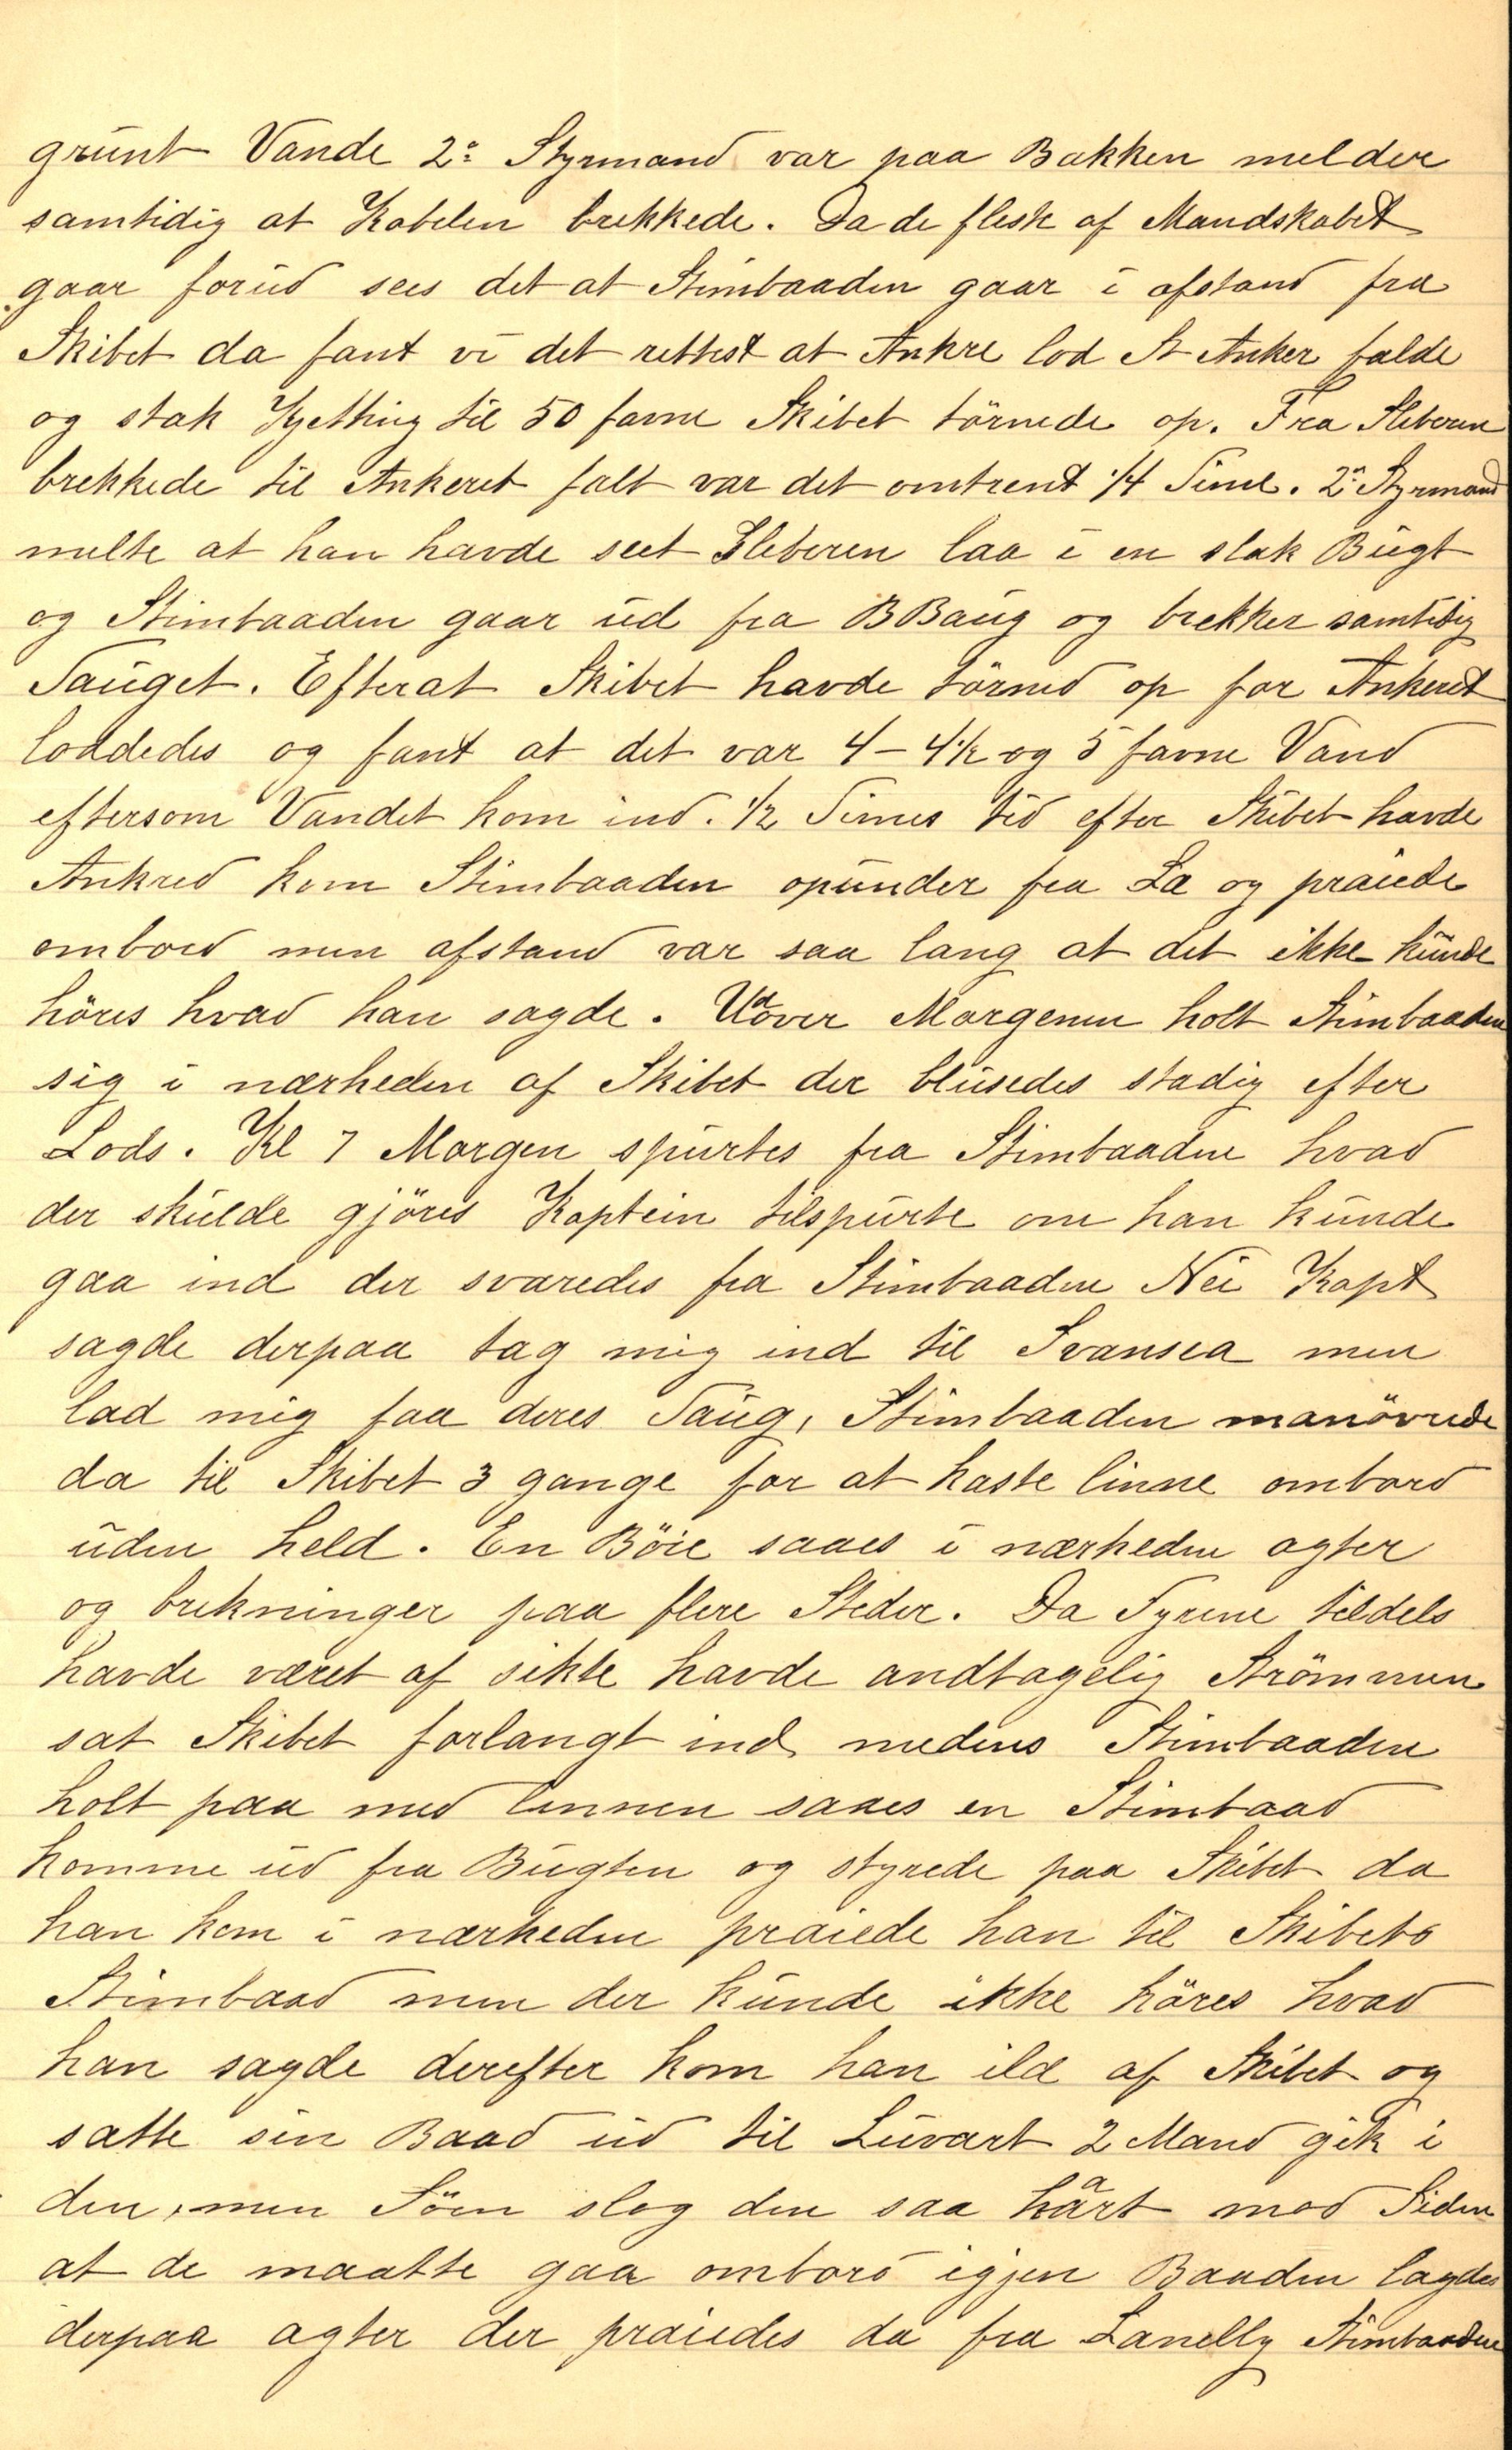 grunt Vande 2n Styrmand var paa Bakken melder
samtidig at Kabelen brekkede. Da de fleste af Mandskabet
gaar forud sees det at Stimbaaden gaar i afstand fra
Skibet da fant vi det rettest at Ankre lod St Anker falde
og stak Kjetting til 50 favne Skibet törnede op. Fra Sleberen
brekkede til Ankeret falt var det omtrent 1/4 Time. 2n Styrmand
melte at han havde seet Sleberen laa i en slak Bugt
og Stimbaaden gaar ud fra BBaug og brekker samtidig
Tauget. Efterat Skibet havde törned op for Ankeret
loddedes og fant at det var 4 – 4 1/2 og 5 favne Vand
eftersom Vandet kom ind. 1/2 Times tid efter Skibet havde
Ankred kom Stimbaaden opunder fra Læ og praiede
ombord men afstand var saa lang at det ikke kunde
höres hvad han sagde. Udover Morgenen holt Stimbaaden
sig i nærheden af Skibet der blusedes stadig efter
Lods. Kl 7 Morgen spurtes fra Stimbaaden hvad
der skulde gjöres Kaptein tilspurte om han kunde
gaa ind der svaredes fra Stimbaaden Nei Kapt
sagde derpaa tag mig ind til Svansea men
lad mig faa deres Taug, Stimbaaden manövrede
da til Skibet 3 gange for at kaste linne ombord
uden held. En Böie saaes i nærheden agter
og brekninger paa flere Steder. Da Fyrene tildels
havde været af sikte havde andtagelig Strömmen
sat Skibet forlangt ind medens Stimbaaden
holt paa med linnen saaes en Stimbaad
komme ud fra Bugten og styrede paa Skibet da
han kom i nærheden praiede han til Skibets
Stimbaad men der kunde ikke höres hvad
han sagde derefter kom han ild af Skibet og
satte sin Baad ud til Luvart 2 Mand gik i
den, men Söen slog den saa hart mod Siden
at de maatte gaa ombord igjen Baaden lagdes
derpaa agter der praiedes da fra Lanelly Stimbaaden